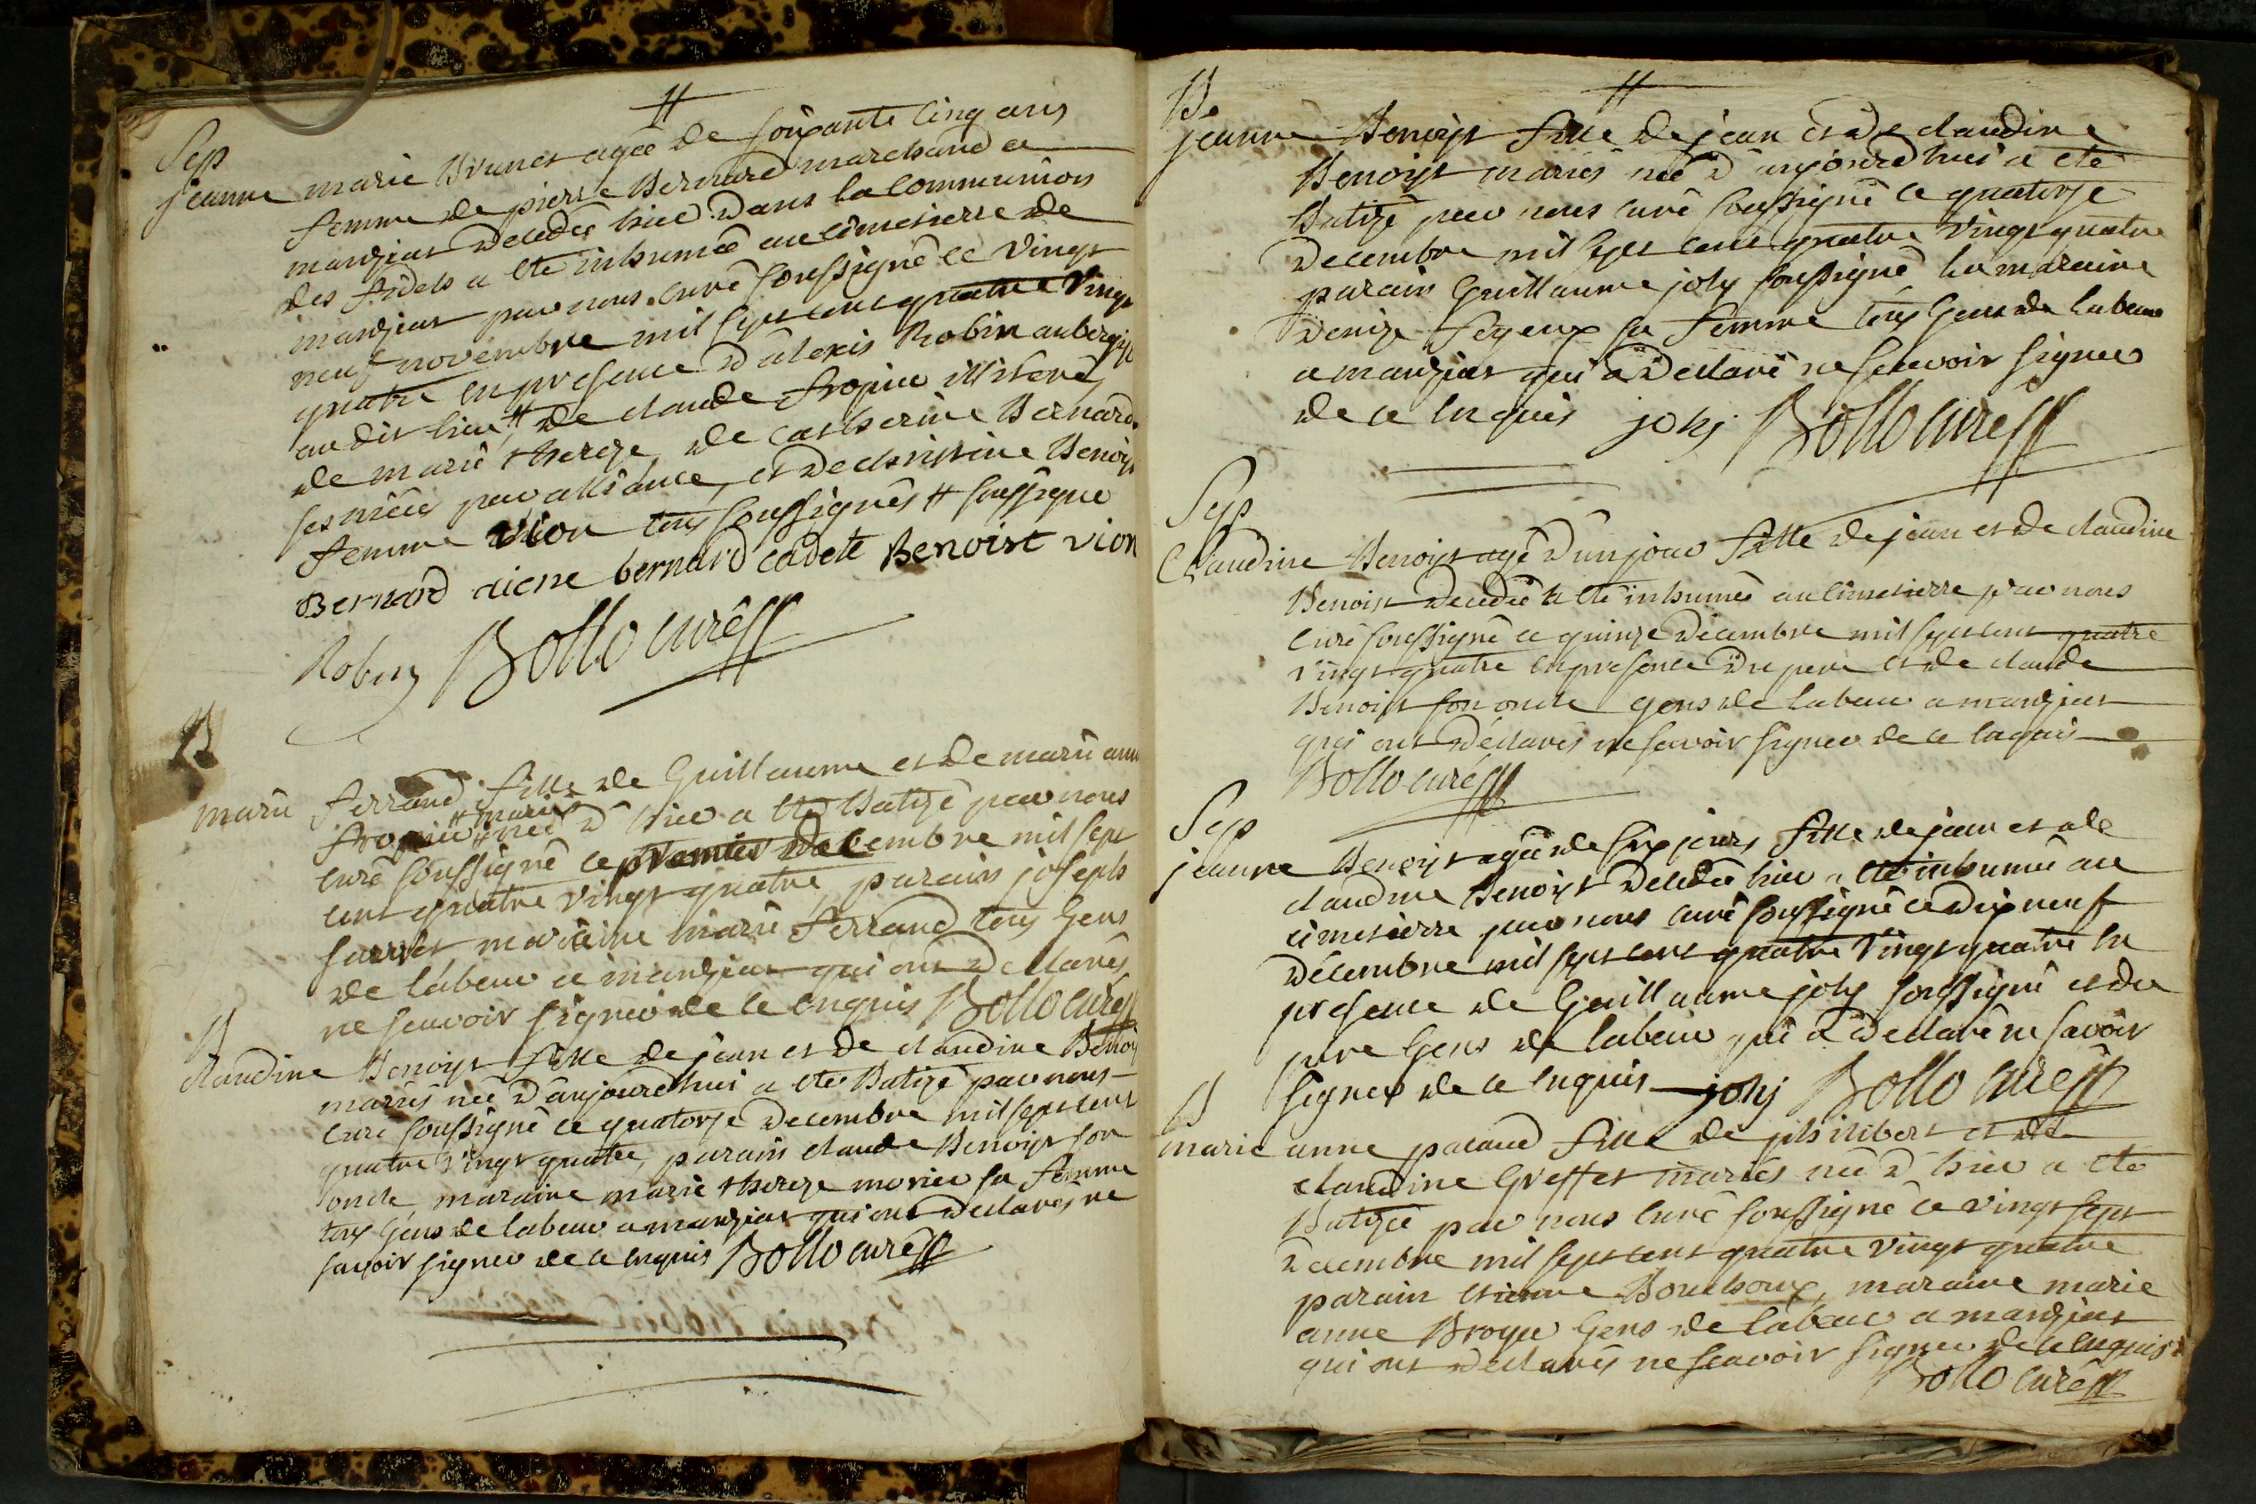 Sep
jeanne marie Brunet agée de soixante cinq ans
femme de pierre Bernard marchand a
manziat decedée hier dans la Communion
des fidels a eté inhumée au cimetierre de
manziat par nous curé soussigné ce vingt
neuf novembre mil sept cent quatre vingt
quatre en presence d'alexis Robin aubergiste
au dit lieu, # de claude fropier illiteré
de marie thereze, de catherine Bernard
ses niéces par alliance, et de christine Benoist
femme vion tous soussignés # soussigne
Bernard aiene bernard cadete Benoist vion
Robin Bollo curé
B
marie ferrand fille de Guillaume et de marie anne
fropier # mariés # née d'hier a eté Batizé par nous
curé soussigné ce premier decembre mil sept
cent quatre vingt quatre, parain joseph
maraine marie ferrand tous Gens
de labeur a manziat qui ont declarés
ne scavoir signer de ce enquis Bollo curé
B
claudine Benoist fille de jean et de claudine Benoist
mariés née d'aujourdhui a eté Batizé par nous
curé soussigné ce quatorze decembre mil sept cent
quatre vingt quatre, parain claude Benoist son
oncle, maraine marie thereze morier sa femme
tous Gens de labeur a manziat qui ont declarés ne
savoir signer de ce enquis Bollo curé
B
jeanne Benoist fille de jean et de claudine
Benoist mariés née d'aujourdhui a eté
Batizé par nous curé soussigné ce quatorze
decembre mil sept cent quatre vingt quatre
parain Guillaume joly soussigné la maraine
denize feyeux sa femme tous Gens de labeur
a manziat qui a declaré ne scavoir signer
de ce enquis joly Bollo curé
Sep
Claudine Benoist agé d'un jour fille de jean et de claudine
Benoist decedée a eté inhumée au cimetierre par nous
curé soussigné ce quinze decembre mil sept cent quatre
vingt quatre en presence du pere et de claude
Benoist son oncle gens de labeur a manziat
qui ont déclarés ne savoir signer de ce enquis
Bollo curé
Sep
jeanne Benoist agée de six jours fille de jean et de
claudine Benoist decedée hier a eté inhumée au
cimetierre par nous curé soussigné ce dix neuf
décembre mil sept cent quatre vingt quatre en
presence de Guillaume joly soussigné et du
pere Gens de labeur qui a declaré ne savoir
signer de ce enquis joly Bollo curé
B
marie anne pacaud fille de philibert et de
claudine Greffet mariés née d'hier a eté
Batizée par nous curé soussigné ce vingt sept
decembre mil sept cent quatre vingt quatre
parain etienne Bouchoux, maraine marie
anne Broyer Gens de labeur a manziat
qui ont declarés ne scavoir signer de ce enquis
Bollo curé